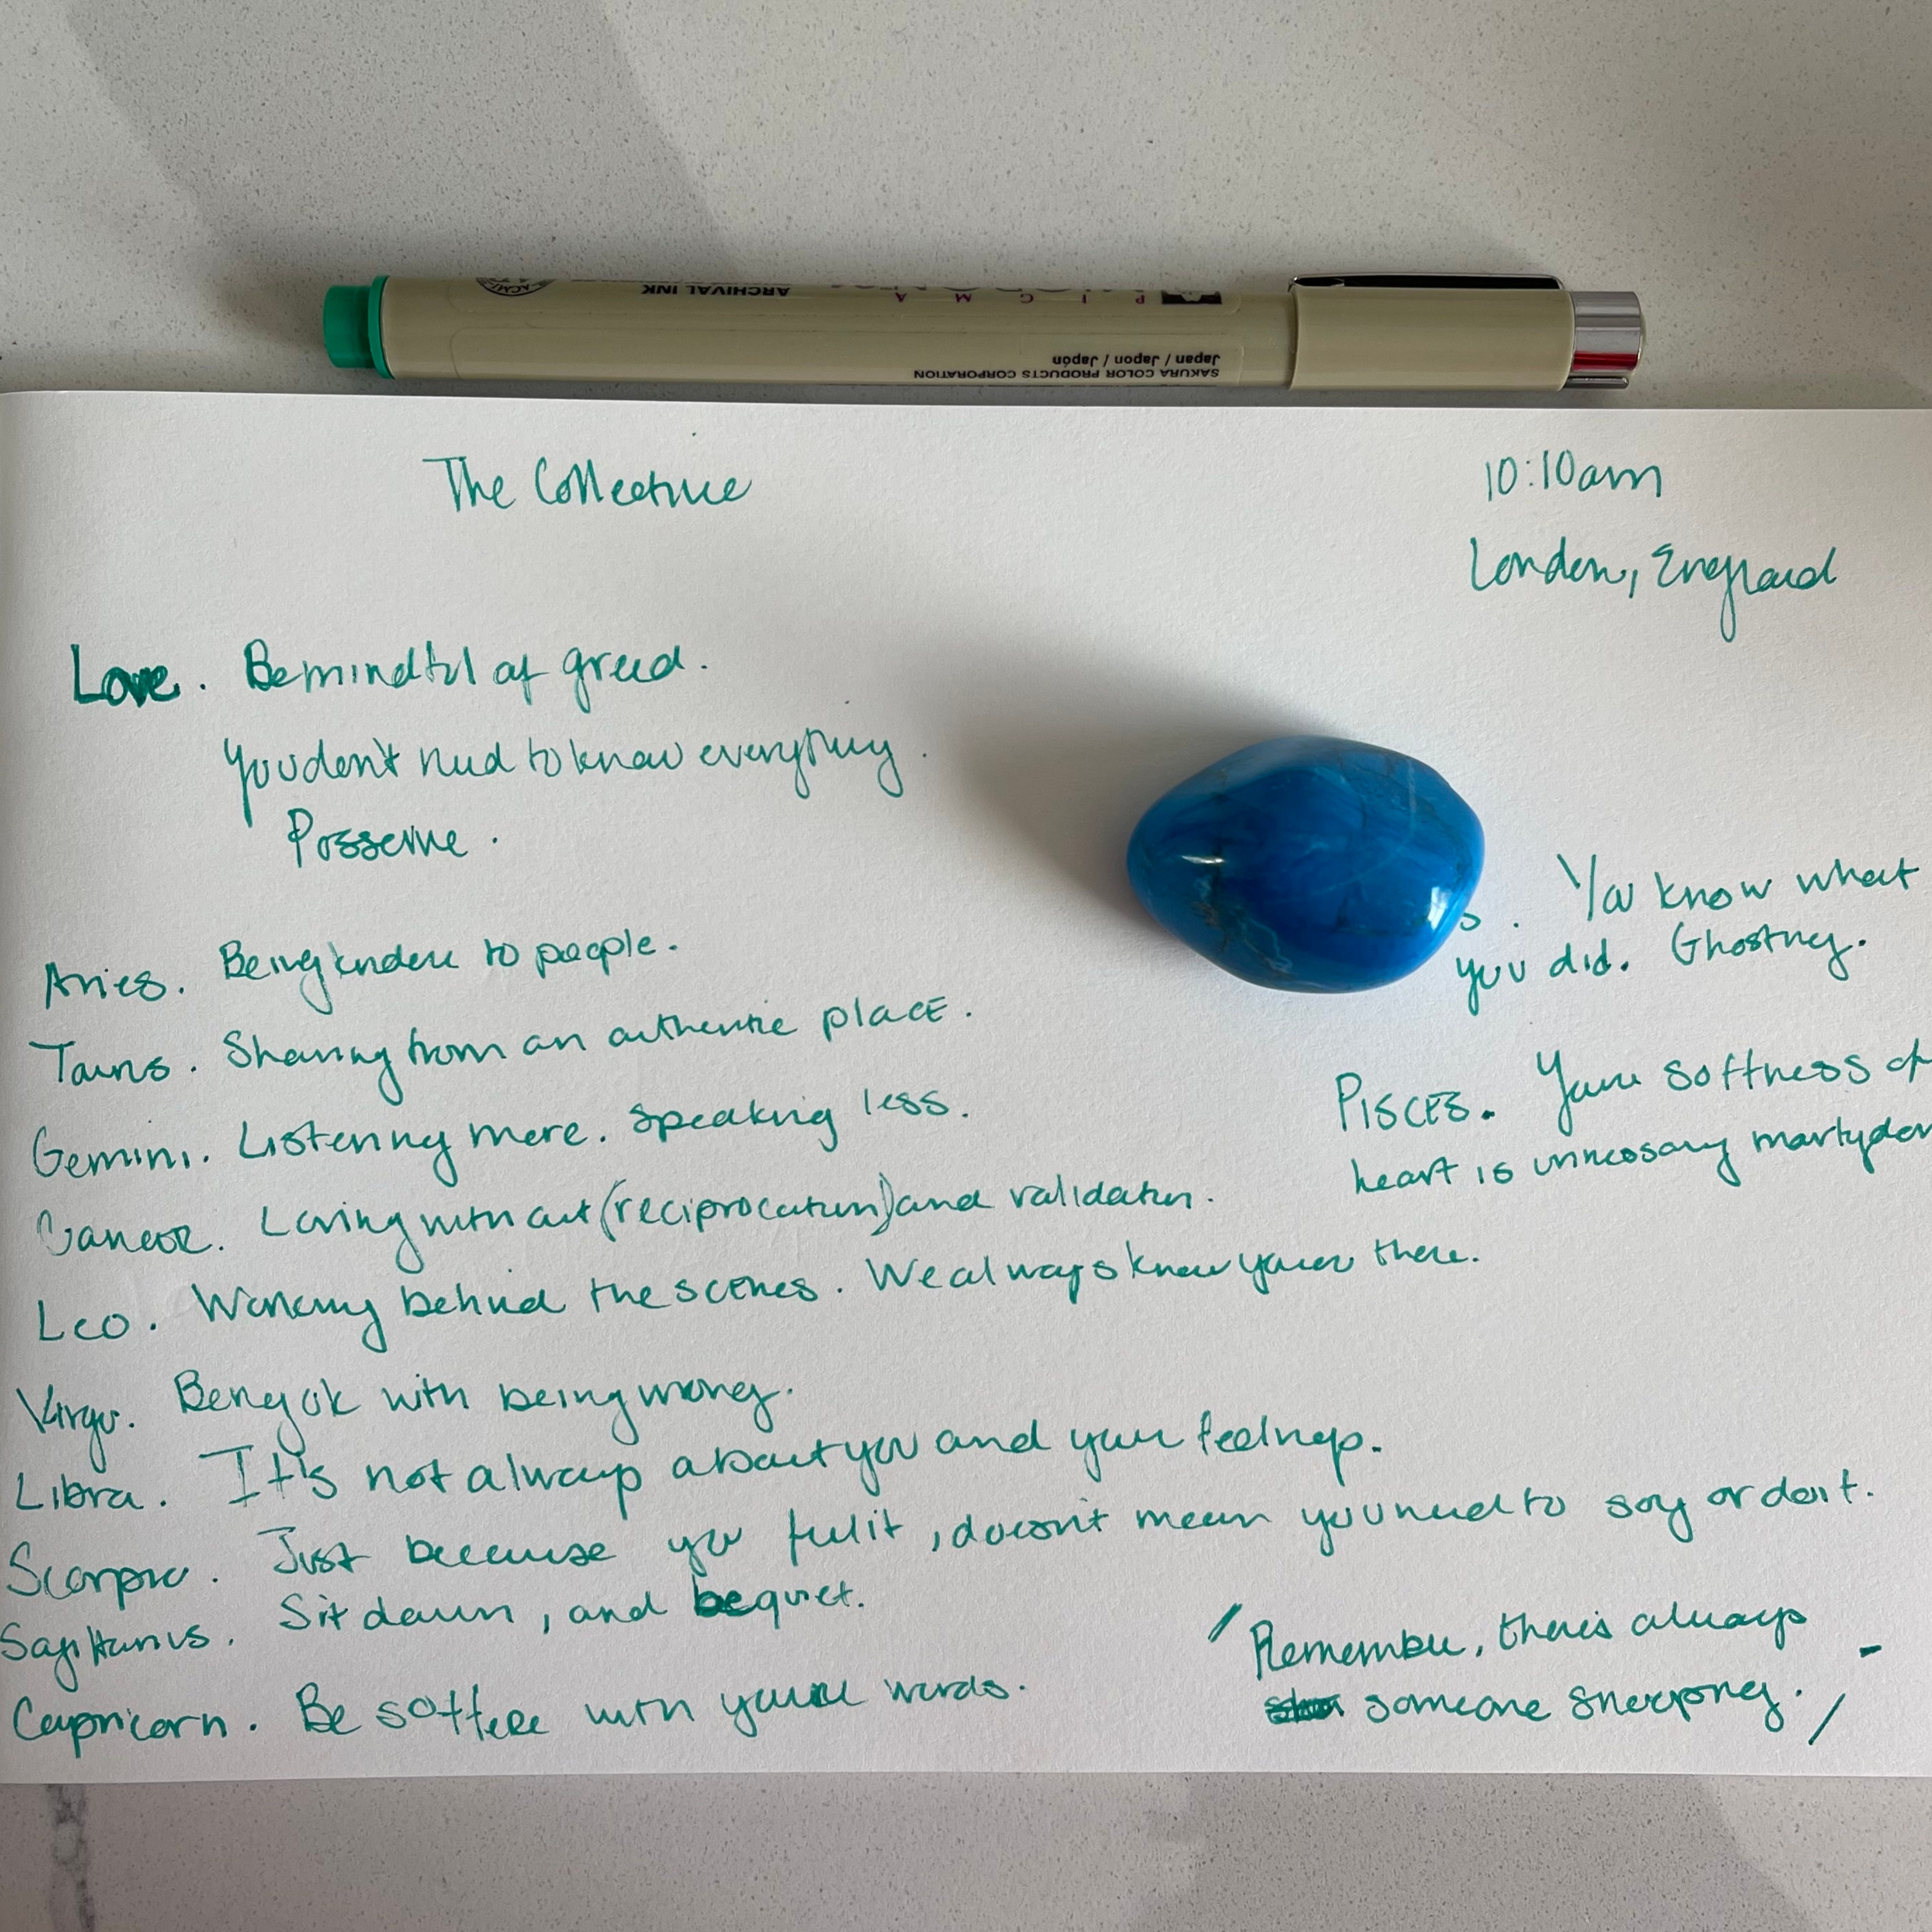 ARCHIVAL INK
PIGMA
SAKURA COLOR PRODUCTS CORPORATION
Japan / Japon / Japón
The Collective
10:10am
London, England
Love. Be mindful of greed.
You don't need to know everything.
Aries. Being kinder to people.
Taurus. Sharing from an authentic place.
Gemini. Listening more. Speaking less.
Cancer. Loving without (reciprocation) and validation.
Leo. Working behind the scenes. We always knew you're there.
Virgo. Being ok with being wrong.
Libra. It's not always about you and your feelings.
Scorpio. Just because you feel it, doesn't mean you need to say or do it.
Sagittarius. Sit down, and be quiet.
Capricorn. Be softer with your words.
s. You know what
you did. Ghosting.
Pisces. Your softness of
heart is unnecessary martydom
Remember, there's always
someone snooping.